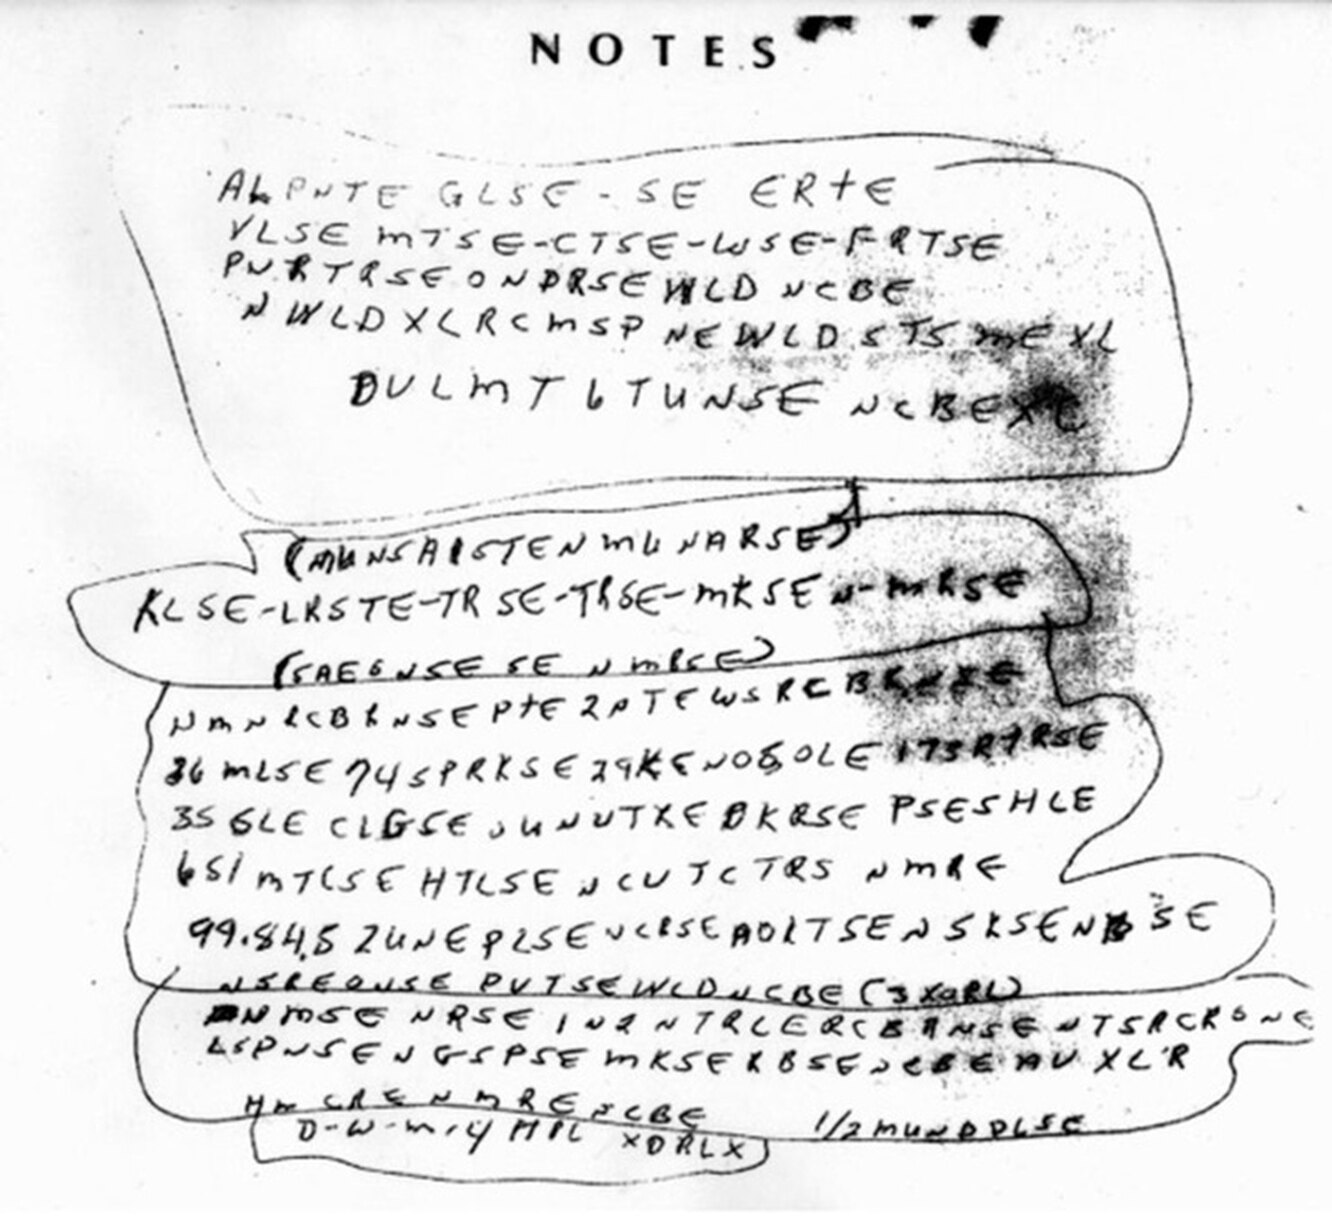 NOTES
ALPNTE GLSE - SE ERTE
VLSE MTSE-CTSE-WSE-FRTSE
PNRTRSE ONDRSE WLD NCBE
N WLD XLRCMSP NEWLD STS ME XL
DULMT 6 TUNSE NCBE XC
(MUNSAISTEN MUNARSE)
KLSE-LRSTE-TRSE-TRSE-MKSEN-MRSE
(SAE6NSE SE N MRSE)
NMNRCBRNSE PTE 2 PTE WSRCBRNSE
36 MLSE 74 SPRKSE 29KENOSOLE 173RTRSE
35 GLE CLGSE UNUTXE DKRSE PSESHLE
651 MTCSE HTLSE NCUTCTRS NMRE
99.84.5 2UNE PLSE NCRSE AOLTSE NSKSE NB SE
NSREONSE PUTSE WLD NCBE (3 XORL)
NMSE NRSE IN2NTRLE RCBRNSE NTSRCRONE
LSPNSE NGSPSE MKSE RBSE NCBE AU XL'R
HM CRE NMRE NCBE 1/2 MUNDDLSE
D-W-M-4 MIL XDRLX